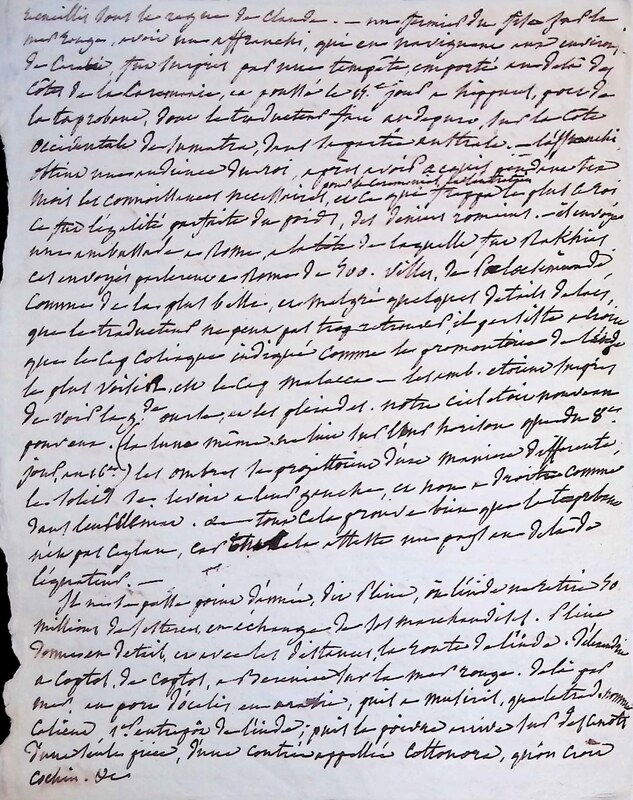 recueillis sous le regne de Claude. — un fermier du fisc sur la
mer rouge, avoit un affranchi, qui en naviguant aux environs
de l'arabie, fut surpris par une tempête, emporté au delà des
côtes de la Caramanie, et poussé le 15e jour a hippuros, port de
la taprobane, dont le traducteur fait un depuis, sur la côte
occidentale de Sumatra, dans la partie australe. — l'affranchi
obtint une audience du roi, après avoir acquis pendant six
mois les connoissances necessaires, et ce qui frappa le plus ce roi
pour la commodité de l'entretien
ce fut l'égalité parfaite du poids, des deniers romains. — il envoya
une ambassade a Rome, a la tête de laquelle fut Rakhias.
ces envoyés parlerent a Rome de 500. villes, de Palaesimunde
comme de la plus belle, et malgré quelques details de lacs,
que le traducteur ne peut pas trop retrouver, il persiste a croire
que le cap Coliaque indiqué comme le promontoire de l'inde
le plus voisin, est le cap Malacca — les amb. etoient surpris
de voir la gde ourse, et les pleiades. notre ciel etoit nouveau
pour eux. (la lune même ne luit sur leur horison que du 8e
jour au 16e) les ombres se projettoient d'une maniere differente
le soleil se levoit a leur gauche, et non a droite comme
dans leur climat. — tout cela prouve bien que la taprobane
n'est pas Ceylan, car cela atteste un pays au delà de
l'équateur. —
Il ne se passe point d'année, dit Pline, où l'inde ne retire 50
millions de sesterces, en echange de ses marchandises. Pline
donne en detail, et avec les distances, la route de l'inde. d'alexandrie
a Coptos, de Coptos, a Berenice sur la mer rouge. delà par
mer, au port d'ocelis en arabie, puis a muziris, que le trad. nomme
Calicut, 1er entrepôt de l'inde; puis le poivre arrive sur des canots
d'une seule piece, d'une contrée appellée Cottonora, qu'on croit
Cochin. &c